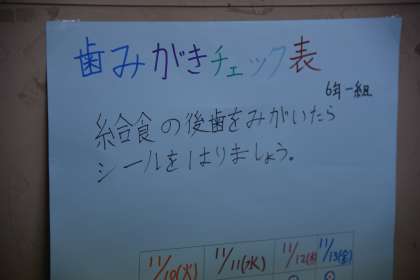 歯みがきチェック表
6年一組
給食の後歯をみがいたら
シールをはりましょう。
11/10(火) 11/11(水) 11/12(木) 11/13(金)